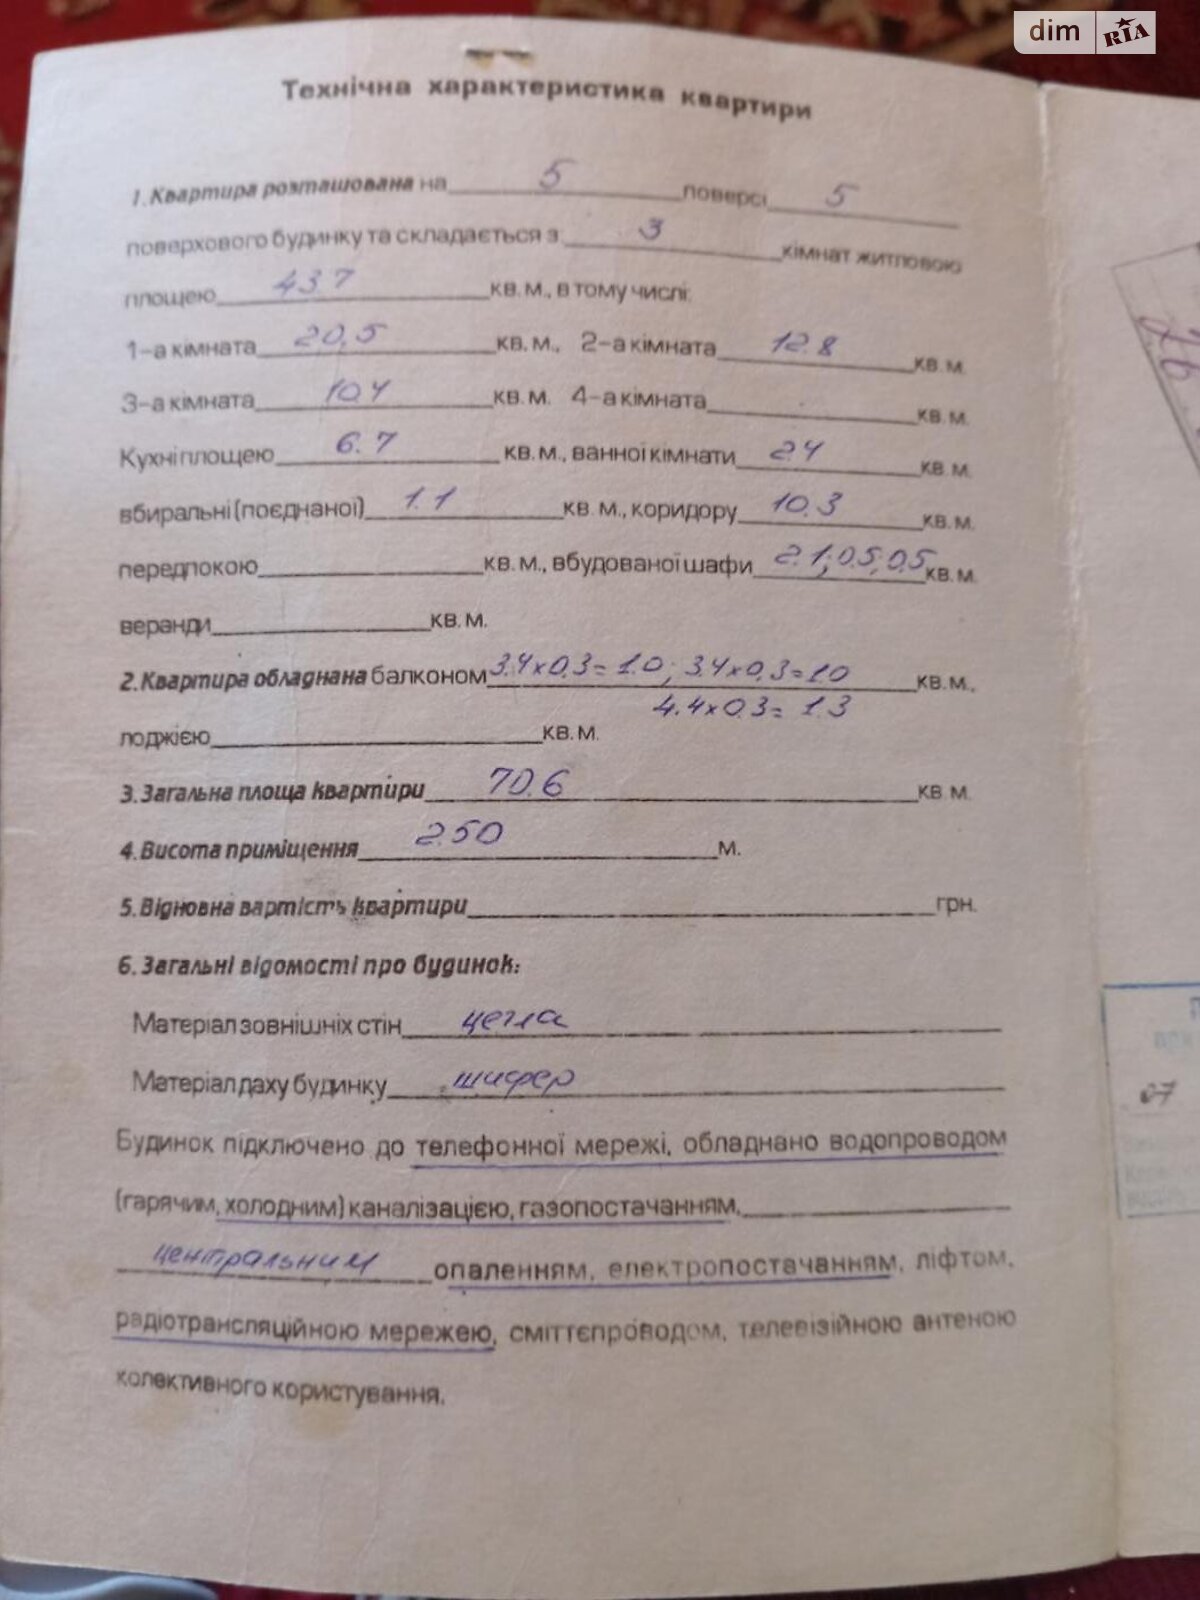 dim RIA
Технічна характеристика квартири
1. Квартира розташована на 5 поверсі 5
поверхового будинку та складається з 3 кімнат житловою
площею 43.7 кв. м., в тому числі:
1-а кімната 20,5 кв. м., 2-а кімната 12.8 кв. м.
3-а кімната 10.4 кв. м. 4-а кімната кв. м.
Кухні площею 6.7 кв. м., ванної кімнати 2.4 кв. м.
вбиральні (поєднаної) 1.1 кв. м., коридору 10.3 кв. м.
передпокою кв. м., вбудованої шафи 2.1; 0.5; 0.5 кв. м.
веранди кв. м.
2. Квартира обладнана балконом 3.4x0.3=1.0; 3.4x0.3=1.0 кв. м.,
4.4x0.3= 1.3
лоджією кв. м.
3. Загальна площа квартири 70.6 кв. м.
4. Висота приміщення 2.50 м.
5. Відновна вартість квартири грн.
6. Загальні відомості про будинок:
Матеріал зовнішніх стін цегла
Матеріал даху будинку шифер
Будинок підключено до телефонної мережі, обладнано водопроводом
(гарячим, холодним) каналізацією, газопостачанням,
центральним опаленням, електропостачанням, ліфтом,
радіотрансляційною мережею, сміттєпроводом, телевізійною антеною
колективного користування.
07